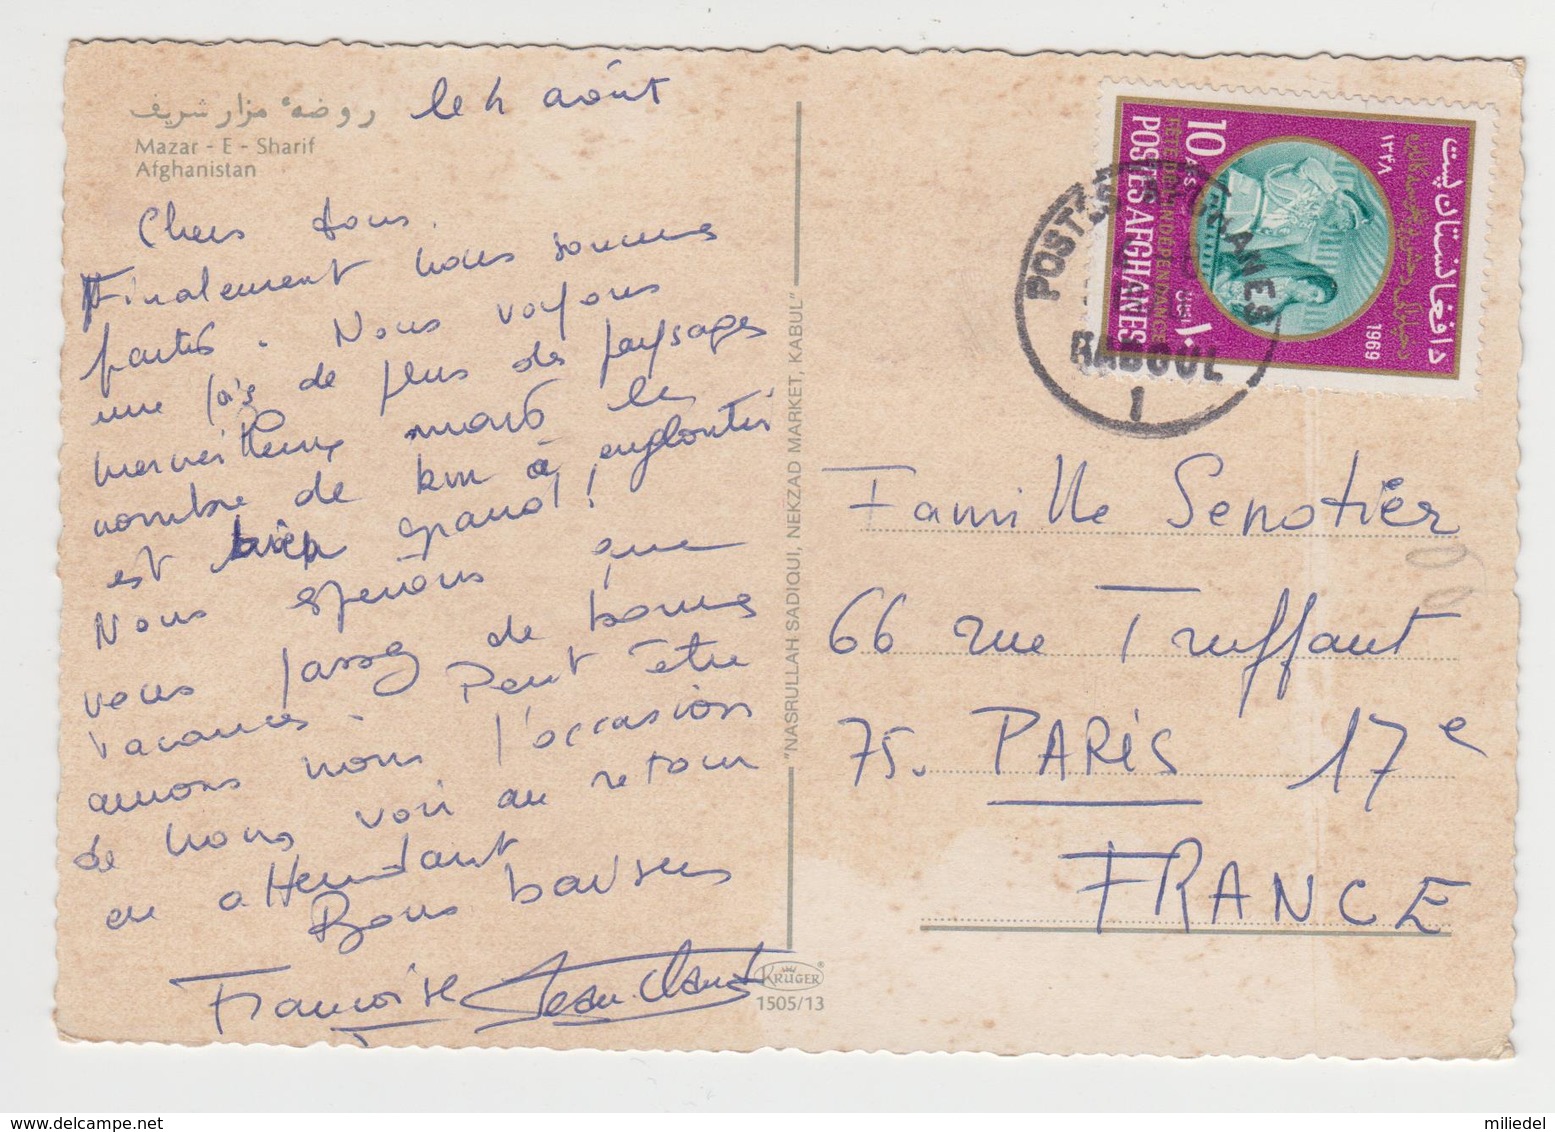 روضهٔ مزار شریف
Mazar - E - Sharif
Afghanistan
le 4 août
Chers tous.
Finalement nous sommes
partis. Nous voyons
une fois de plus des paysages
merveilleux mais le
nombre de km à engloutir
est bien grand!
Nous espérons que
vous passez de bonnes
vacances. Peut être
aurons nous l'occasion
de nous voir au retour
en attendant
Bons baisers
Françoise Jean Claude
"NASRULLAH SADIQUI, NEKZAD MARKET, KABUL"
KRÜGER
1505/13
POSTES AFGHANES
KABOUL
1
10 AFS
FÊTE DE L'INDEPENDANCE
POSTES AFGHANES
د افغانستان پست
۱۳۴۸
1969
۱۰
Famille Senotier
66 rue Truffaut
75. PARIS 17e
FRANCE
milie­del